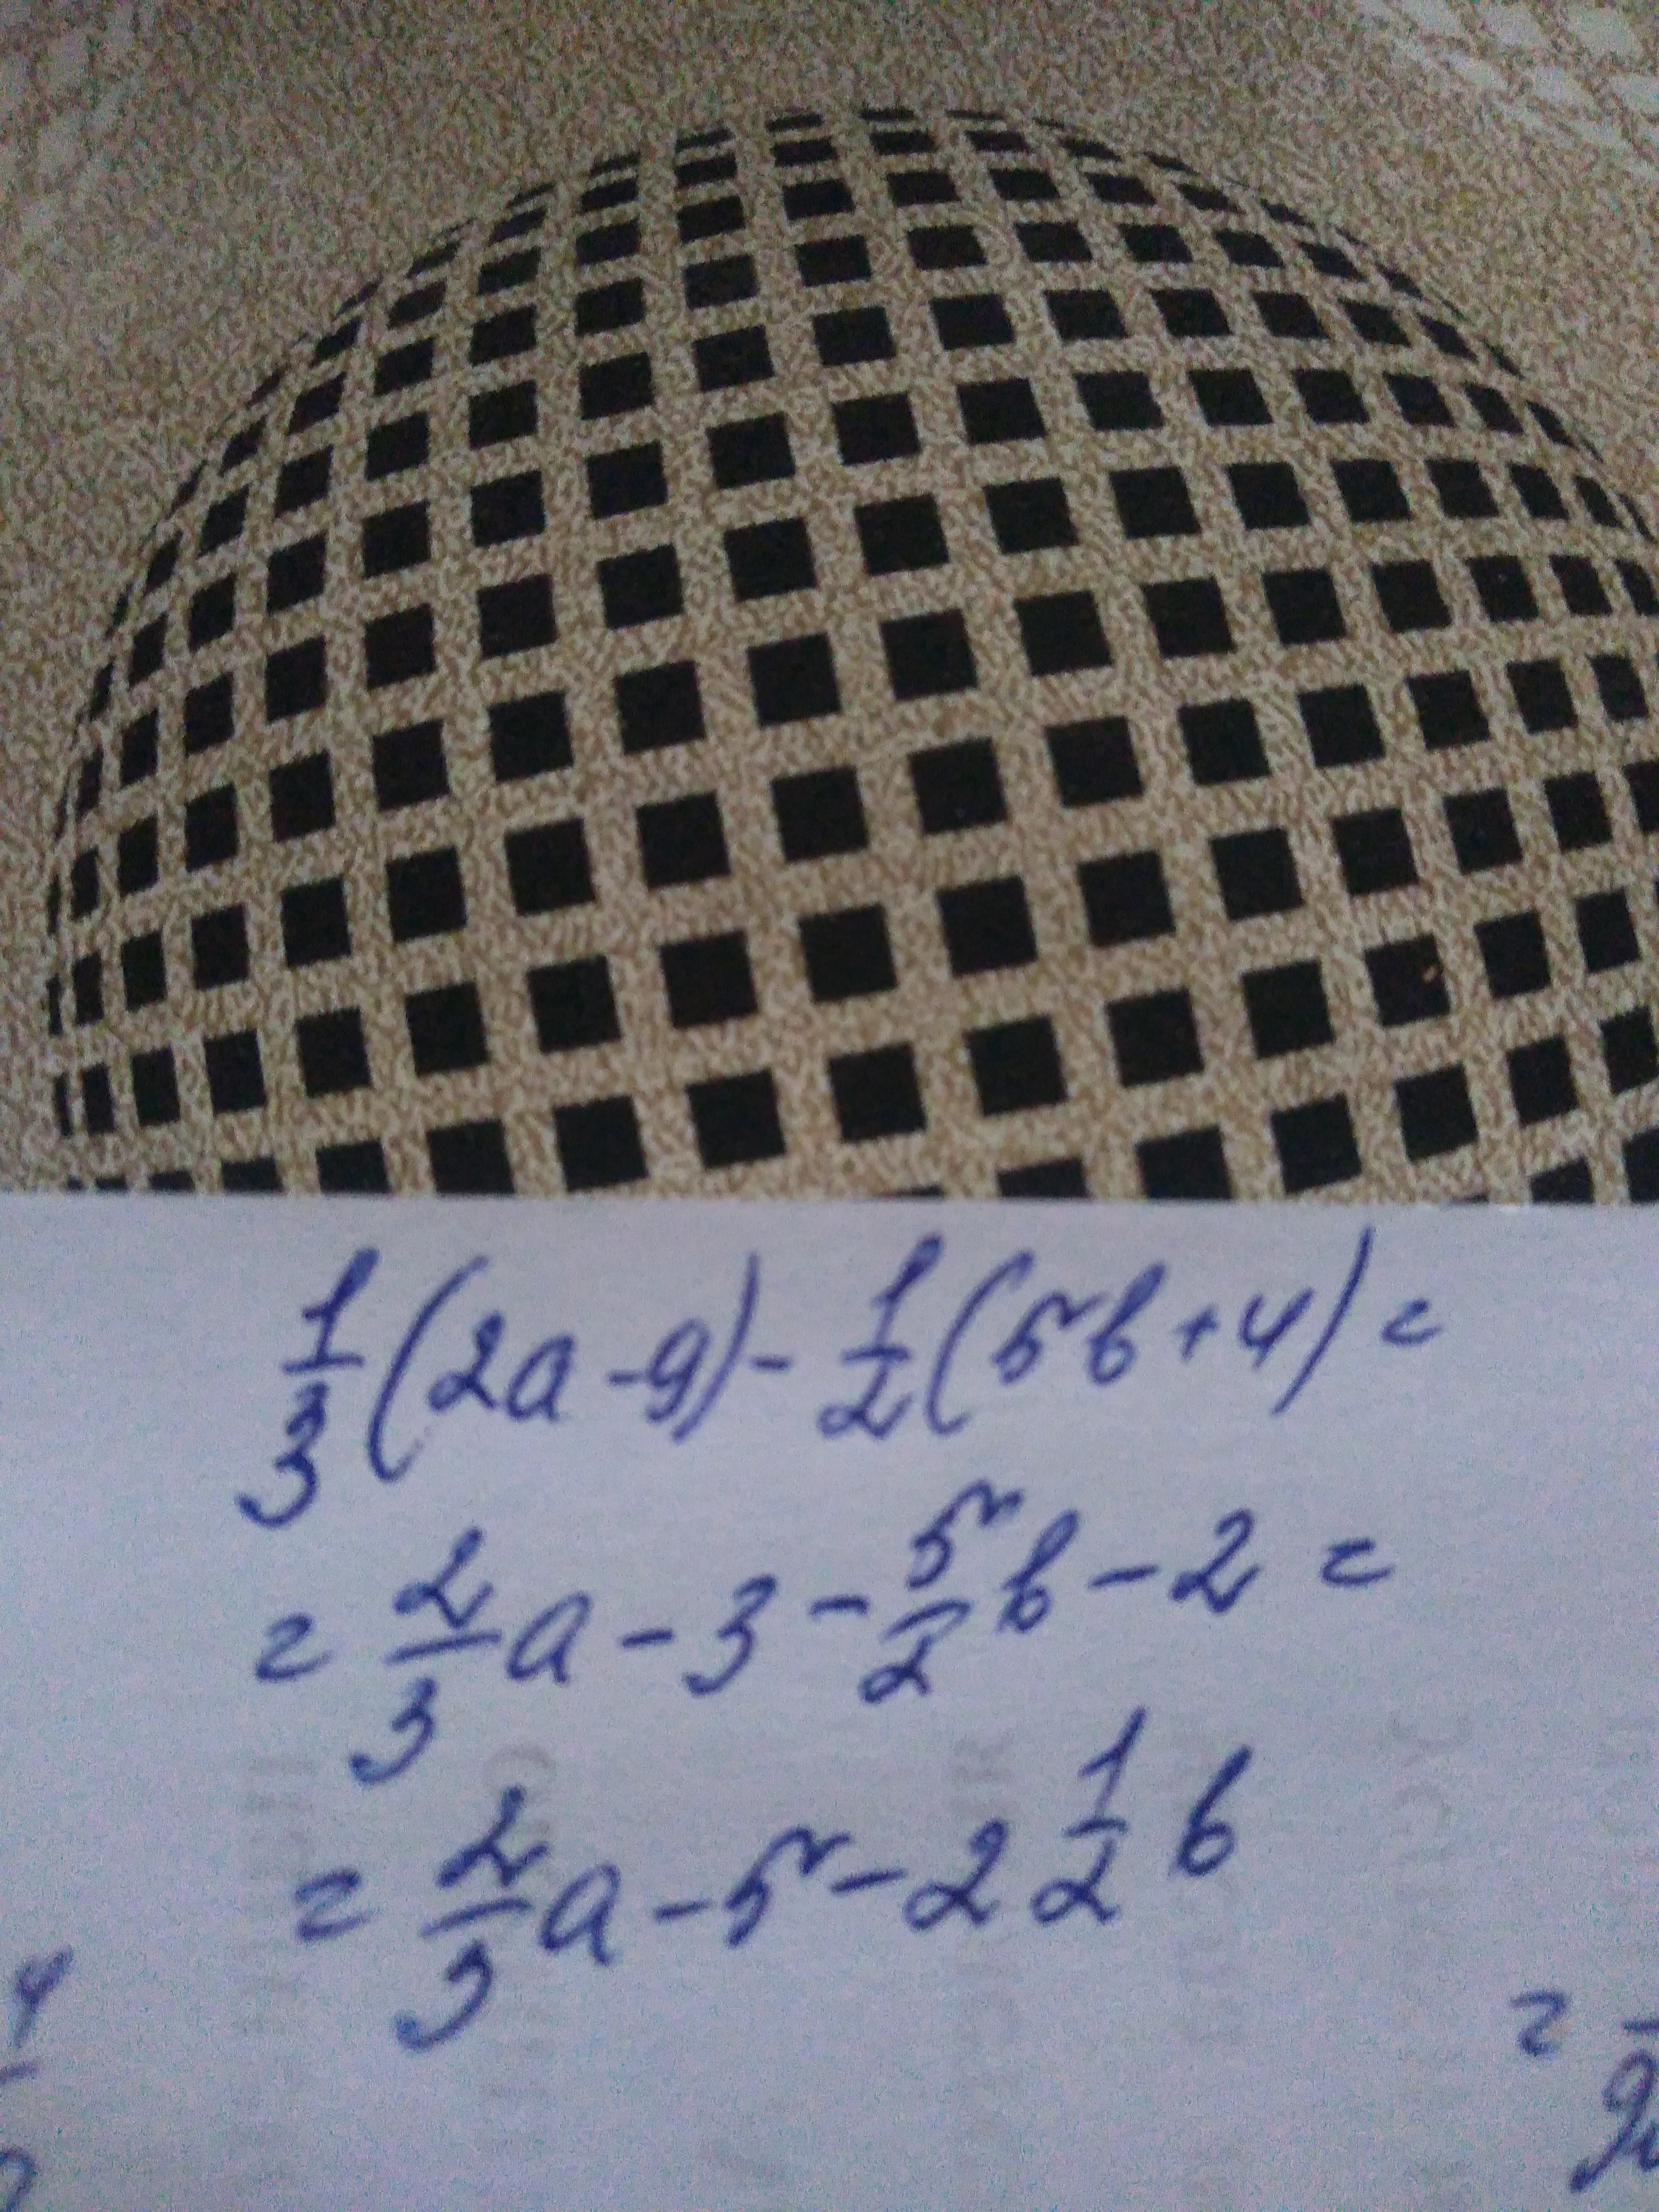 1/3 (2a - 9) - 1/2 (5b + 4) =
= 2/3 a - 3 - 5/2 b - 2 =
= 2/3 a - 5 - 2 1/2 b
4
=